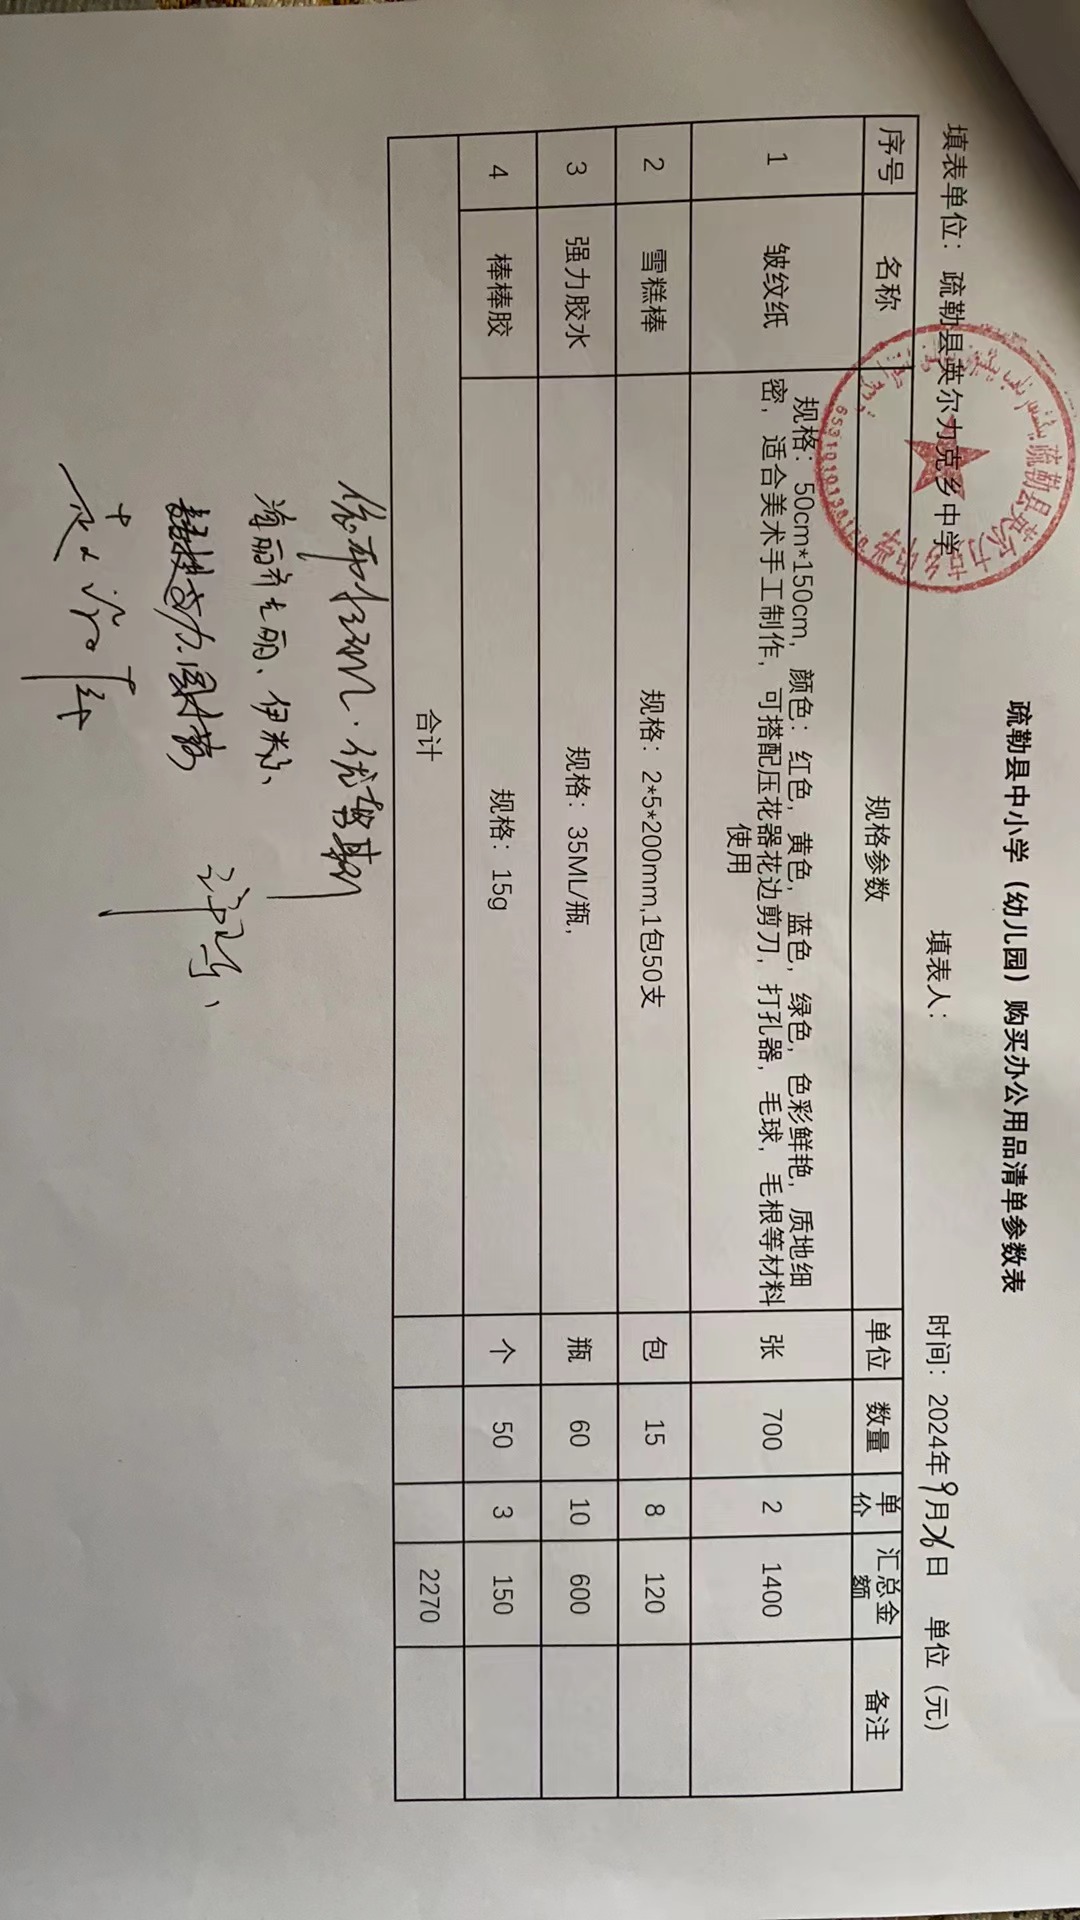 疏勒县中小学（幼儿园）购买办公用品清单参数表
填表单位：疏勒县英尔力克乡中学 填表人： 时间：2024年9月26日 单位（元）
序号 名称 规格参数 单位 数量 单价 汇总金额 备注
1 皱纹纸 规格：50cm*150cm，颜色：红色，黄色，蓝色，绿色，色彩鲜艳，质地细
密，适合美术手工制作，可搭配压花器花边剪刀，打孔器，毛球，毛根等材料
使用 张 700 2 1400
2 雪糕棒 规格：2*5*200mm,1包50支 包 15 8 120
3 强力胶水 规格：35ML/瓶, 瓶 60 10 600
4 棒棒胶 规格：15g 个 50 3 150
合计 2270
疏勒县英尔力克乡中学